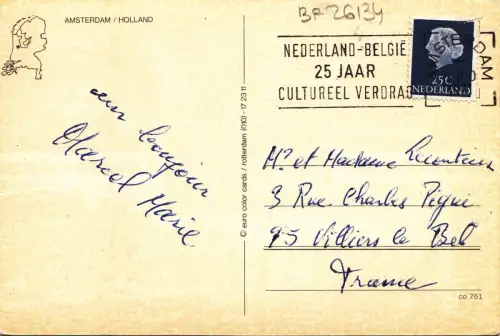 AMSTERDAM / HOLLAND
BF26134
NEDERLAND-BELGIË
25 JAAR
CULTUREEL VERDRAG
AMSTERDAM
25C
NEDERLAND
un bonjour
Marcel Marie
© euro color cards / rotterdam (010) - 17 23 11
Mr et Madame
3 Rue Charles Pigui
95 Villiers le Bel
France
co 751